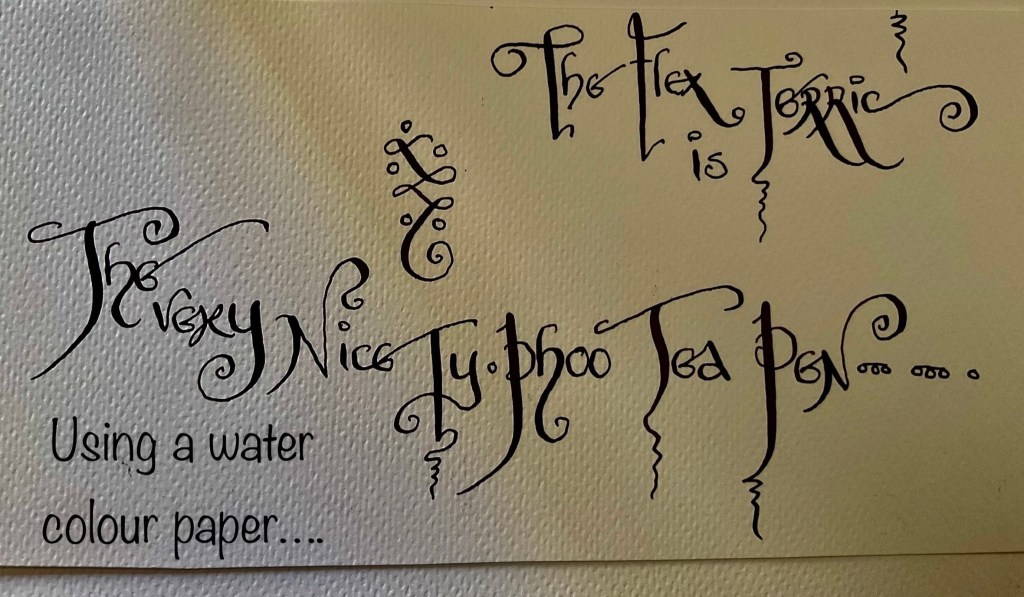 The Flex
is Terric
The very Nice Ty.phoo Tea Pen
Using a water
colour paper....